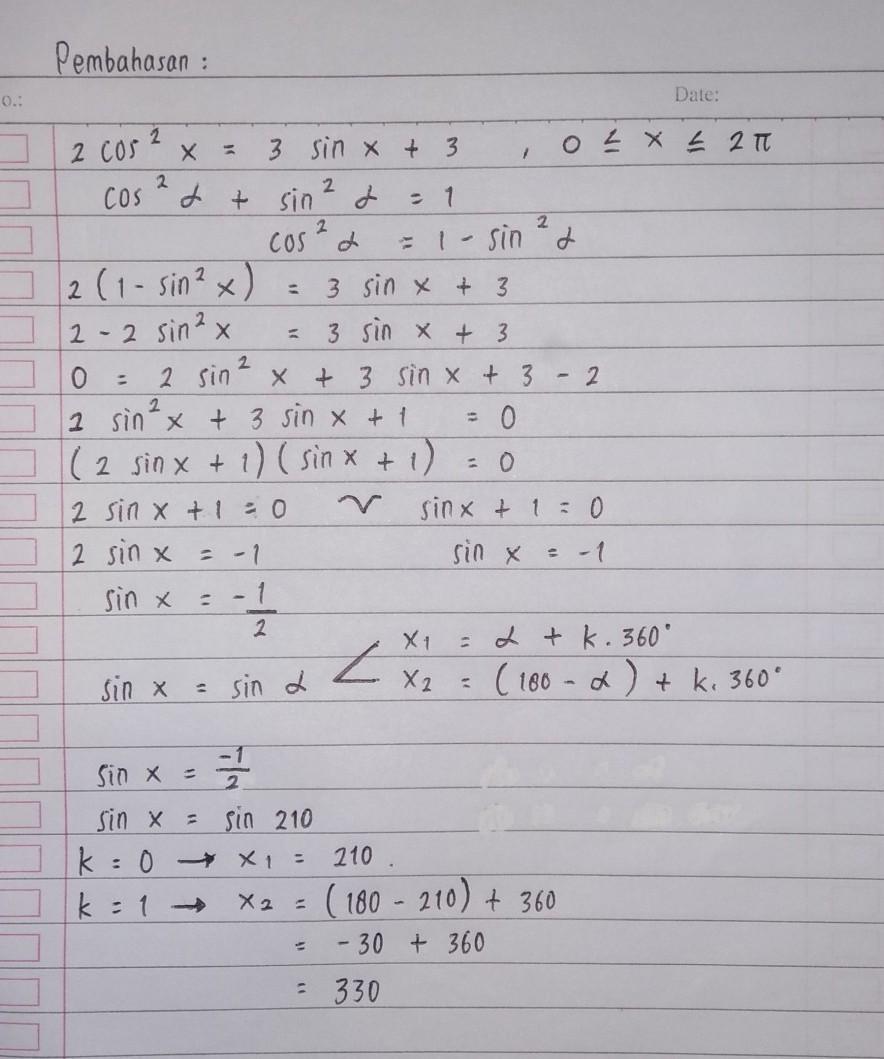 Pembahasan :
o.: Date:
2 cos² x = 3 sin x + 3 , 0 ≤ x ≤ 2π
cos² α + sin² α = 1
cos² α = 1 - sin² α
2 (1 - sin² x) = 3 sin x + 3
2 - 2 sin² x = 3 sin x + 3
0 = 2 sin² x + 3 sin x + 3 - 2
2 sin² x + 3 sin x + 1 = 0
(2 sin x + 1) (sin x + 1) = 0
2 sin x + 1 = 0 ∨ sin x + 1 = 0
2 sin x = -1 sin x = -1
sin x = -1/2
x₁ = α + k . 360°
sin x = sin α < x₂ = (180 - α) + k. 360°
sin x = -1/2
sin x = sin 210
k = 0 → x₁ = 210 .
k = 1 → x₂ = (180 - 210) + 360
= -30 + 360
= 330